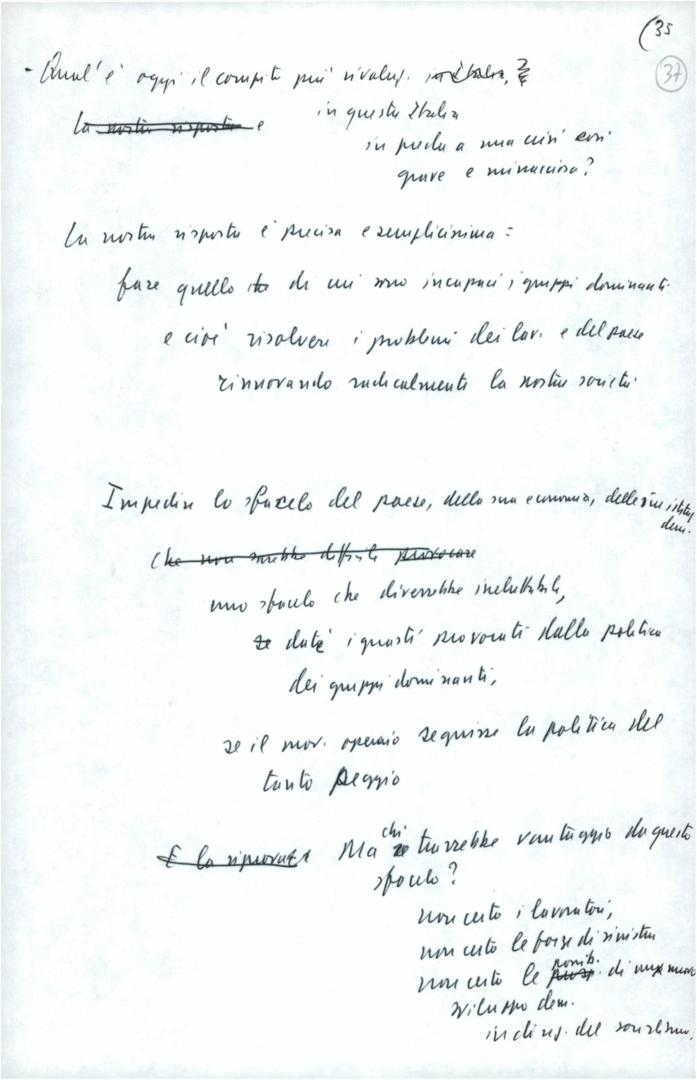 (35
37
- Qual'è oggi il compito più rivoluz. in Italia,
in questa Italia
La nostra risposta e
in preda a una crisi così
grave e minacciosa?
La nostra risposta è precisa e semplicissima:
fare quello di cui sono incapaci i gruppi dominanti
e cioè risolvere i problemi dei lav. e del paese
rinnovando radicalmente la nostra società
Impedire lo sfacelo del paese, della sua economia, delle sue istituz.
dem.
che non sarebbe difficile provocare
uno sfacelo che diverrebbe ineluttabile,
date i guasti provocati dalla politica
dei gruppi dominanti,
se il mov. operaio seguisse la politica del
tanto peggio
chi
E la Ma trarrebbe vantaggio da questo
sfacelo?
non certo i lavoratori,
non certo le forze di sinistra
possib.
non certo le di un nuovo
sviluppo dem.
in direz. del socialismo.